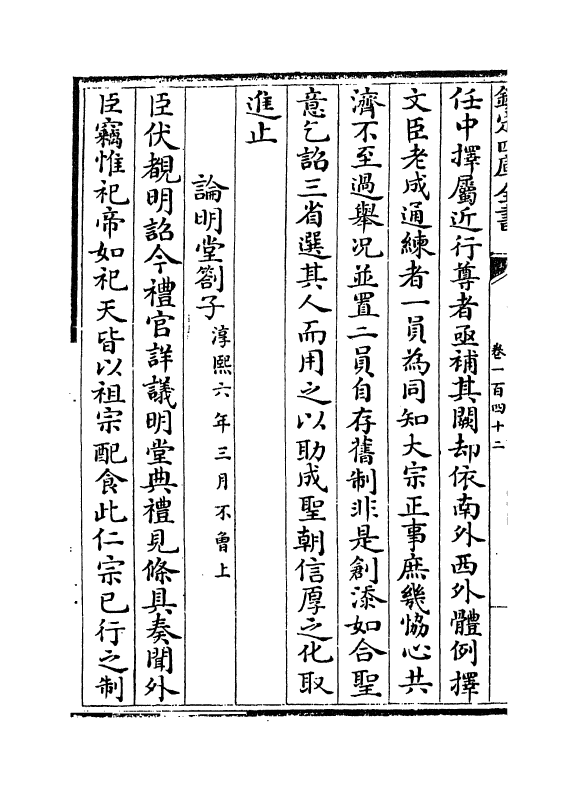 欽定四庫全書
卷一百四十二
任中擇屬近行尊者亟補其闕却依南外西外體例擇
文臣老成通練者一員為同知大宗正事庶幾恊心共
濟不至過舉况並置二員自存舊制非是創添如合聖
意乞詔三省選其人而用之以助成聖朝信厚之化取
進止
論明堂劄子淳熙六年三月不曾上
臣伏覩明詔令禮官詳議明堂典禮見條具奏聞外
臣竊惟祀帝如祀天皆以祖宗配食此仁宗已行之制